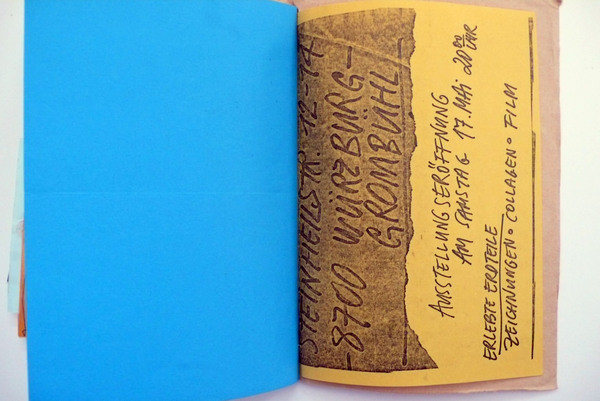 STEINHEILSTR. 12-14
8700 WÜRZBURG-
GROMBÜHL
AUSSTELLUNGSERÖFFNUNG
AM SAMSTAG 17. MAI 20⁰⁰ UHR
ERLEBTE ERDTEILE
ZEICHNUNGEN • COLLAGEN • FILM